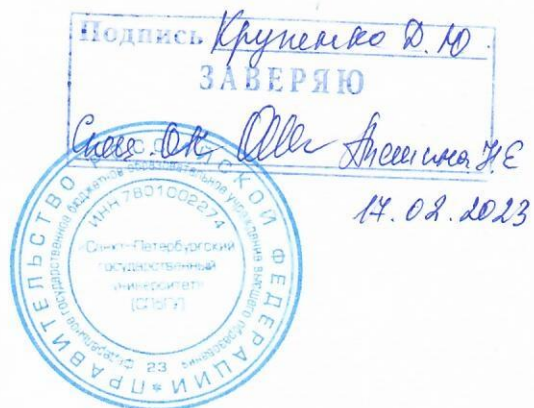 Подпись Крупенко Д. Ю.
ЗАВЕРЯЮ
Спец. ОК Н.Е
17.02.2023
ПРАВИТЕЛЬСТВО РОССИЙСКОЙ ФЕДЕРАЦИИ
Федеральное государственное бюджетное образовательное учреждение высшего образования
ИНН 7801002274
«Санкт-Петербургский
государственный
университет»
(СПбГУ)
23